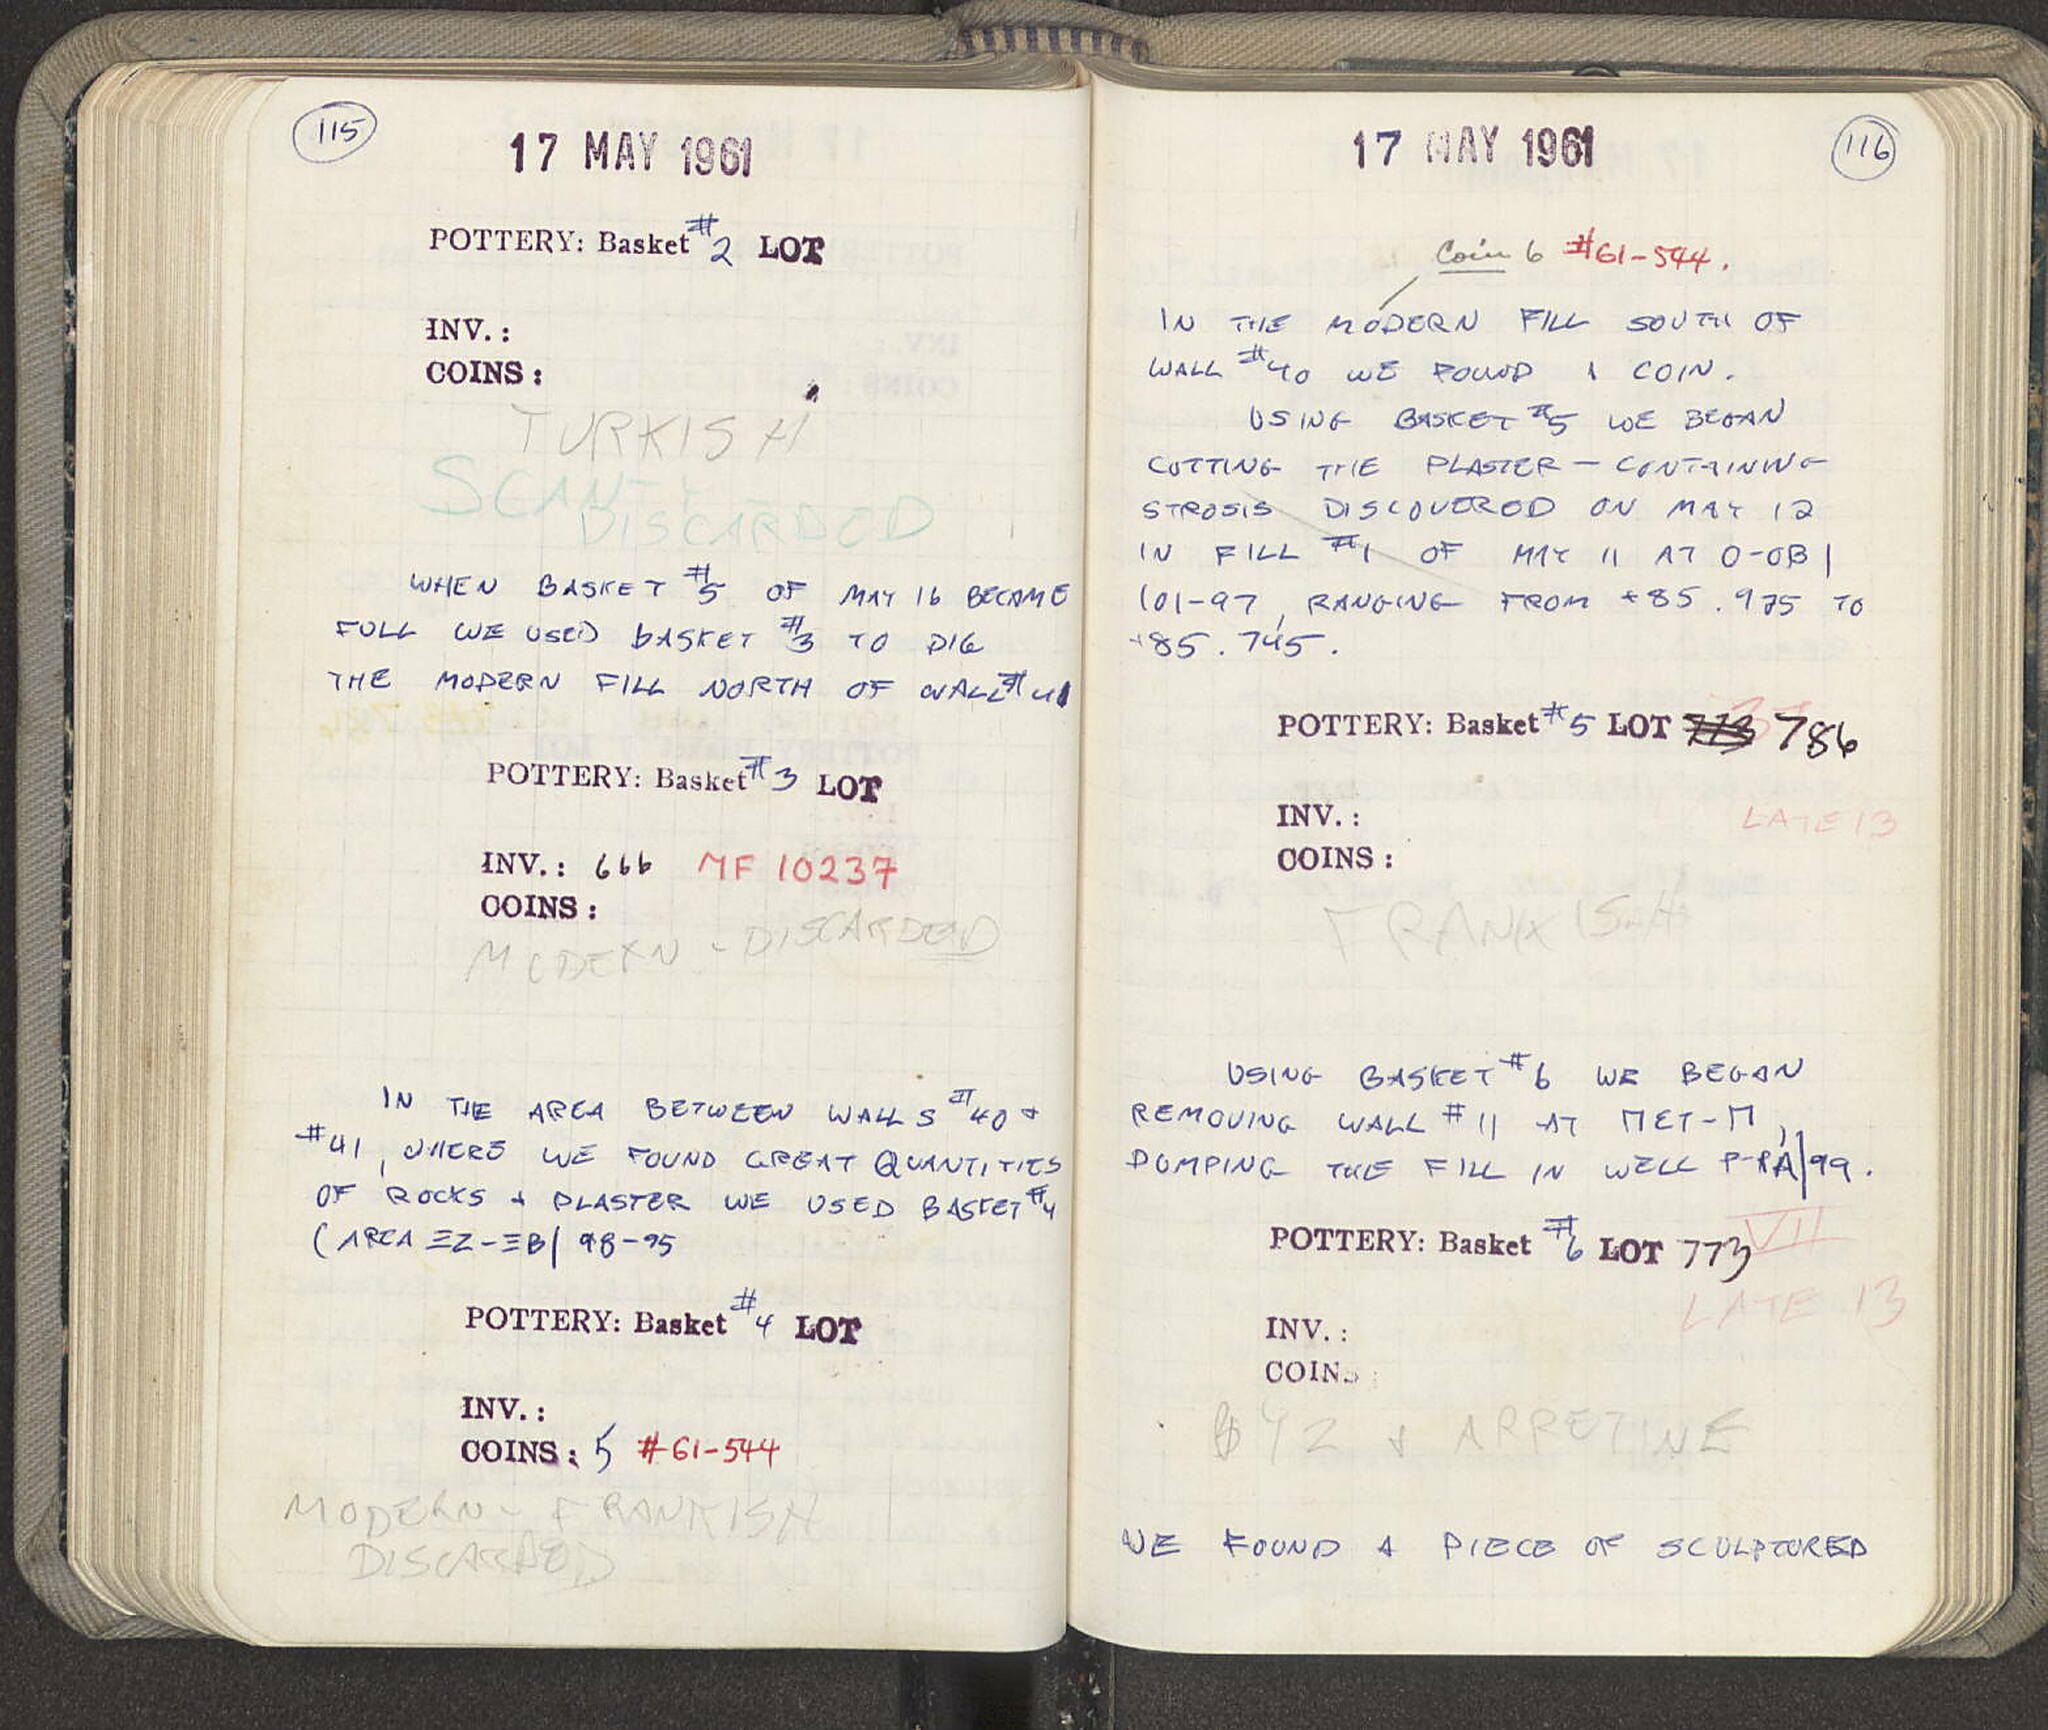 115
17 MAY 1961
POTTERY: Basket #2 LOT
INV.:
COINS:
TURKISH
SCANTY
DISCARDED
WHEN BASKET #5 OF MAY 16 BECAME
FULL WE USED BASKET #3 TO DIG
THE MODERN FILL NORTH OF WALL #41
POTTERY: Basket #3 LOT
INV.: 666 MF 10237
COINS:
MODERN - DISCARDED
IN THE AREA BETWEEN WALLS #40 +
#41, WHERE WE FOUND GREAT QUANTITIES
OF ROCKS + PLASTER WE USED BASKET #4
(AREA ΞZ-ΞB/98-95
POTTERY: Basket #4 LOT
INV.:
COINS: 5 #61-544
MODERN - FRANKISH
DISCARDED
116
17 MAY 1961
Coin 6 #61-544.
IN THE MODERN FILL SOUTH OF
WALL #40 WE FOUND 1 COIN.
USING BASKET #5 WE BEGAN
CUTTING THE PLASTER-CONTAINING
STROSIS DISCOVERED ON MAY 12
IN FILL #1 OF MAY 11 AT O-OB/
101-97, RANGING FROM +85.975 TO
+85.745.
POTTERY: Basket #5 LOT 773 786
LATE 13
INV.:
COINS:
FRANKISH
USING BASKET #6 WE BEGAN
REMOVING WALL #11 AT ΠET-Π,
DUMPING THE FILL IN WELL P-PA/99.
POTTERY: Basket #6 LOT 773 VII
LATE 13
INV.:
COINS:
BYZ + ARRETINE
WE FOUND A PIECE OF SCULPTURED